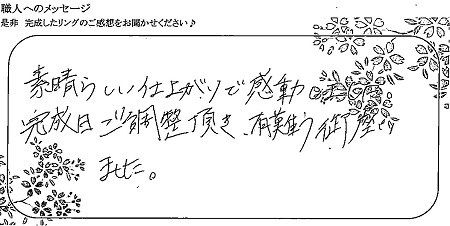 職人へのメッセージ
是非 完成したリングのご感想をお聞かせください♪
素晴らしい仕上がりで感動しました。
完成日ご調整頂き、有難う御座い
ました。